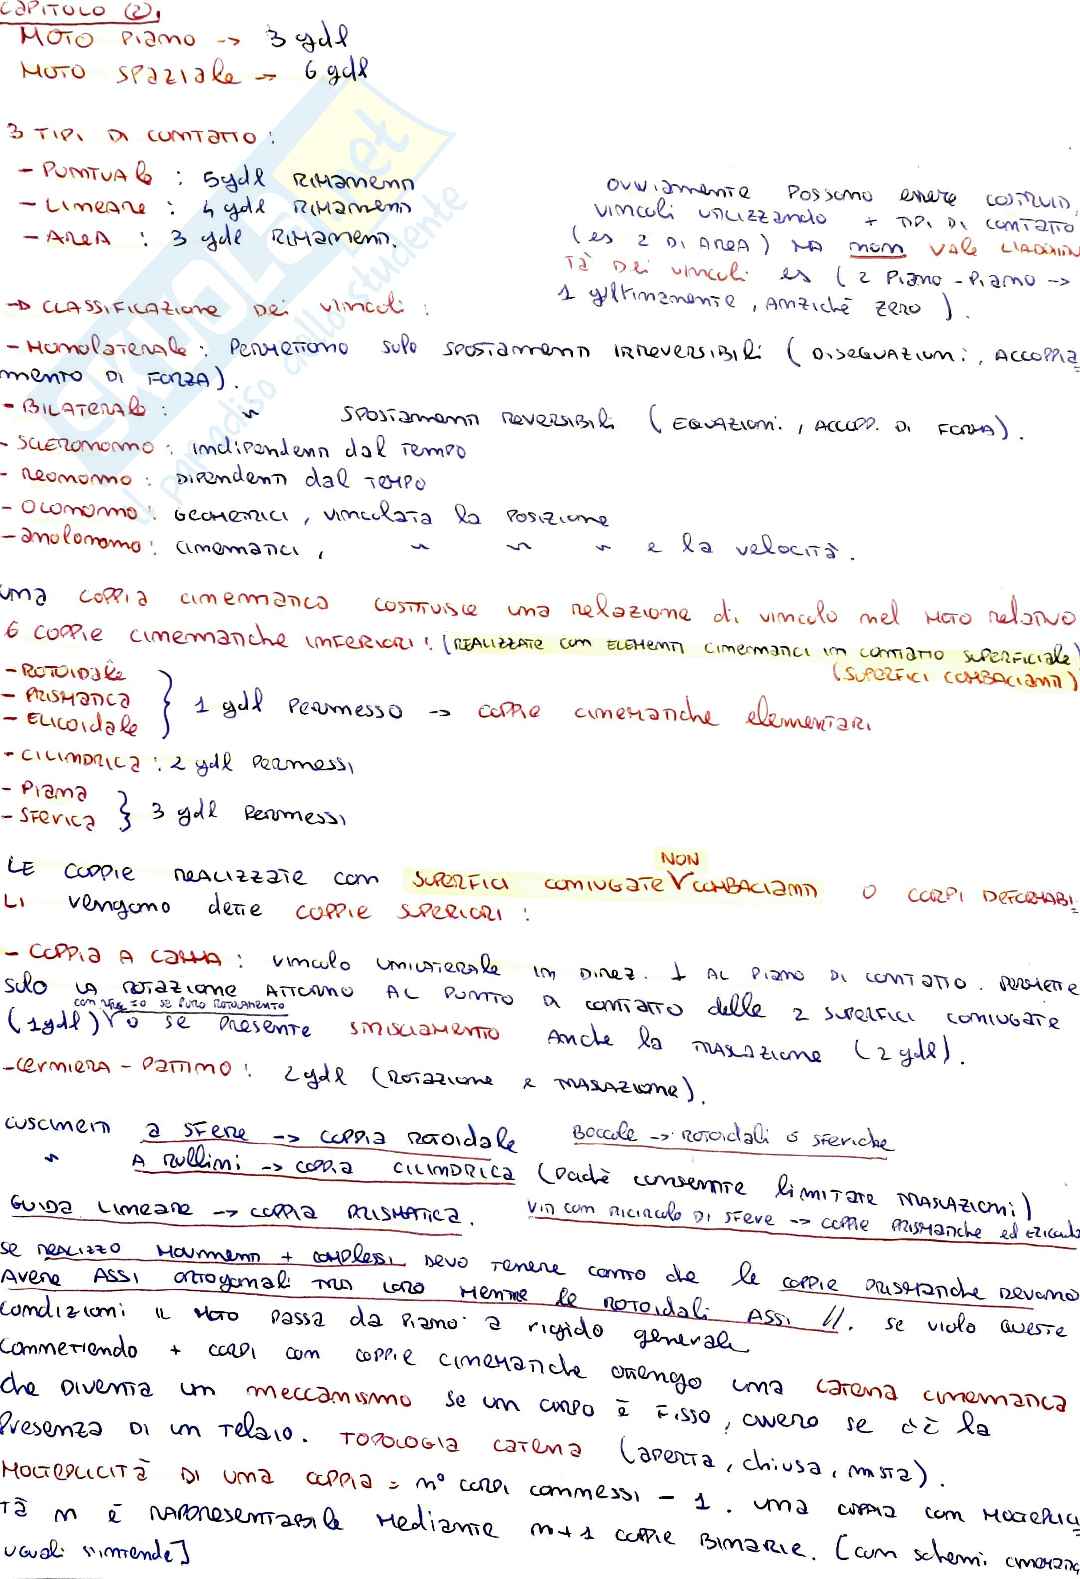 CAPITOLO (2).
MOTO PIANO -> 3 gdl
MOTO SPAZIALE -> 6 gdl
3 TIPI DI CONTATTO :
- PUNTUALE : 5 gdl RIMANENTI
- LINEARE : 4 gdl RIMANENTI
- AREA : 3 gdl RIMANENTI.
OVVIAMENTE POSSONO essere COSTRUITI
VINCOLI UTILIZZANDO + TIPI DI CONTATTO
(es 2 DI AREA) MA non VALE L'ADDITIVI
TÀ DEI VINCOLI es (2 PIANO-PIANO ->
1 gdl rimanente, ANZICHÉ ZERO).
-> CLASSIFICAZIONE DEI VINCOLI :
- MONOLATERALE : PERMETTONO SOLO SPOSTAMENTI IRREVERSIBILI (DISEQUAZIONI, ACCOPPIA
MENTO DI FORZA).
- BILATERALE : " SPOSTAMENTI REVERSIBILI (EQUAZIONI, ACCOPP. DI FORMA).
- SCLERONOMO : indipendenti dal TEMPO
- REONOMO : DIPENDENTI dal TEMPO
- OLONOMO : GEOMETRICI, VINCOLATA la POSIZIONE
- anolonomo : CINEMATICI, " " " e la velocità.
UNA COPPIA CINEMATICA COSTITUISCE una relazione di vincolo nel MOTO RELATIVO
6 COPPIE CINEMATICHE INFERIORI : (REALIZZATE CON ELEMENTI CINEMATICI IN CONTATTO SUPERFICIALE)
(SUPERFICI COMBACIANTI)
- ROTOIDALE
- PRISMATICA
- ELICOIDALE
} 1 gdl PERMESSO -> COPPIE CINEMATICHE elementari
- CILINDRICA : 2 gdl PERMESSI
- PIANA
- SFERICA
} 3 gdl PERMESSI
LE COPPIE REALIZZATE CON SUPERFICI CONIUGATE NON COMBACIANTI O CORPI DEFORMABI-
LI vengono dette COPPIE SUPERIORI :
- COPPIA A CAMMA : VINCOLO UNILATERALE IN DIREZ. ⊥ AL PIANO DI CONTATTO. PERMETTE
SOLO LA ROTAZIONE ATTORNO AL PUNTO DI CONTATTO delle 2 SUPERFICI CONIUGATE
se PURO ROTOLAMENTO
(1 gdl) o SE PRESENTE STRISCIAMENTO Anche la TRASLAZIONE (2 gdl).
- CERNIERA - PATTINO : 2 gdl (ROTAZIONE e TRASLAZIONE).
CUSCINETTI a SFERE -> COPPIA ROTOIDALE Boccole -> ROTOIDALI o SFERICHE
" A RULLINI -> COPPIA CILINDRICA (PERCHÈ CONSENTE limitate TRASLAZIONI)
GUIDA LINEARE -> COPPIA PRISMATICA. VITI con RICIRCOLO DI SFERE -> COPPIE PRISMATICHE ed
se REALIZZO MOVIMENTI + COMPLESSI DEVO TENERE conto che le COPPIE PRISMATICHE DEVONO
AVERE ASSI ortogonali TRA LORO MENTRE le ROTOIDALI ASSI //. se violo QUESTE
condizioni IL MOTO PASSA da PIANO a rigido generale
Connettendo + CORPI con COPPIE CINEMATICHE ottengo una CATENA CINEMATICA
che DIVENTA un meccanismo se un CORPO È FISSO, OVVERO se c'è la
PRESENZA DI un TELAIO. TOPOLOGIA CATENA (APERTA, chiusa, mista).
MOLTEPLICITÀ DI UNA COPPIA = n° CORPI connessi - 1. una COPPIA con MOLTEPLICI
TÀ n È RAPPRESENTABILE MEDIANTE n+1 COPPIE BINARIE. [con schemi
uguali s'intende]